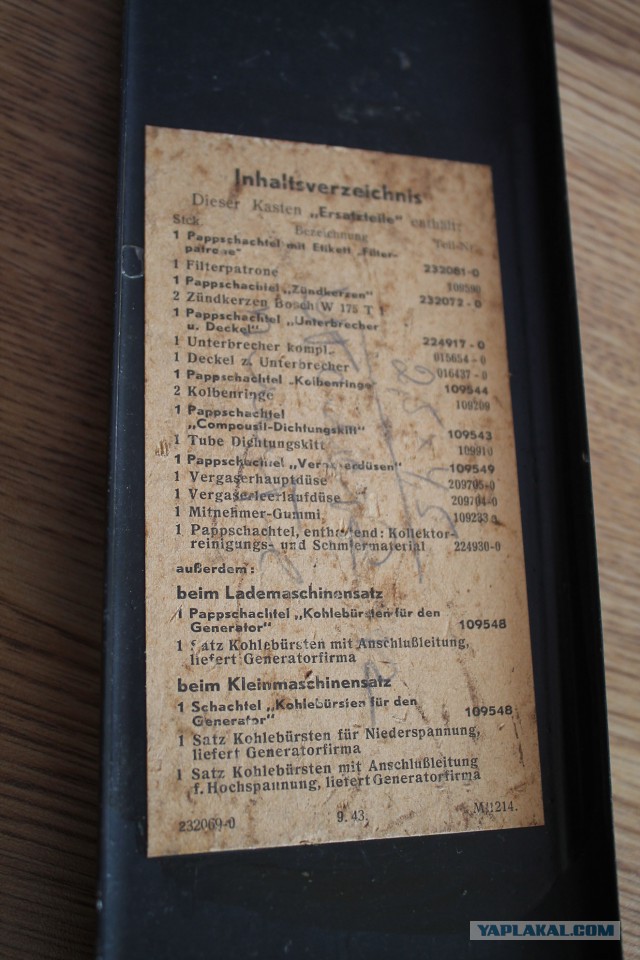 Inhaltsverzeichnis
Dieser Kasten „Ersatzteile“ enthält:
Stck. Bezeichnung Teil-Nr.
1 Pappschachtel mit Etikett „Filter-
patrone“ 232081-0
1 Filterpatrone
1 Pappschachtel „Zündkerzen“ 232072-0
2 Zündkerzen Bosch W 175 T 1
1 Pappschachtel „Unterbrecher
u. Deckel“ 224917-0
1 Unterbrecher kompl. 015654-0
1 Deckel z. Unterbrecher 016437-0
1 Pappschachtel „Kolbenringe“ 109544
2 Kolbenringe 109209
1 Pappschachtel
„Compousil-Dichtungskitt“ 109543
1 Tube Dichtungskitt 109910
1 Pappschachtel „Vergaserdüsen“ 109549
1 Vergaserhauptdüse 209705-0
1 Vergaserleerlaufdüse 209704-0
1 Mitnehmer-Gummi 109233
1 Pappschachtel, enthaltend: Kollektor-
reinigungs- und Schmiermaterial 224930-0
außerdem:
beim Lademaschinensatz
1 Pappschachtel „Kohlebürsten für den
Generator“ 109548
1 Satz Kohlebürsten mit Anschlußleitung,
liefert Generatorfirma
beim Kleinmaschinensatz
1 Schachtel „Kohlebürsten für den
Generator“ 109548
1 Satz Kohlebürsten für Niederspannung,
liefert Generatorfirma
1 Satz Kohlebürsten mit Anschlußleitung
f. Hochspannung, liefert Generatorfirma
232069-0 9. 43.
YAPLAKAL.COM